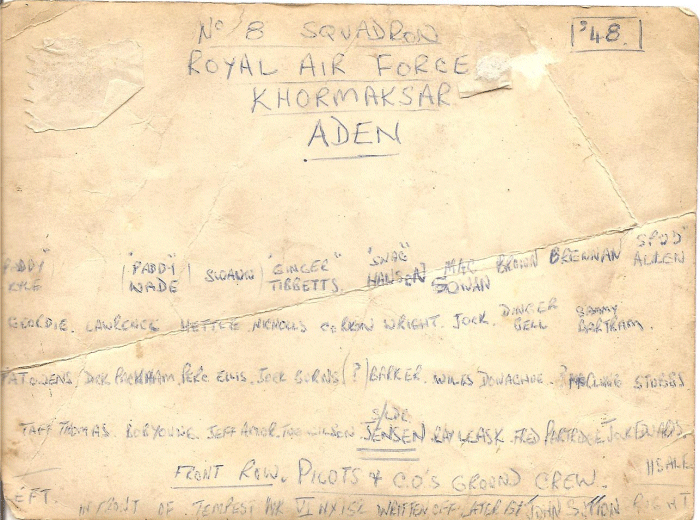 No 8 SQUADRON '48.
ROYAL AIR FORCE
KHORMAKSAR
ADEN
"PADDY" KYLE ("PADDY" WADE) SLOANN "GINGER" TIBBETTS. "SNAG" HANSEN MAC GOWAN BROWN BRENNAN "SPUD" ALLEN
GEORDIE. LAWRENCE HETTLE NICHOLLS CORRON WRIGHT. JOCK. DINGER BELL SAMMY BARTRAM.
TAT OWENS DICK PACKHAM PERC. ELLIS. JOCK BURNS (?) BARKER. WILKS DONAGHUE. STUBBS
TAFF THOMAS. BOB YOUNG. JEFF AMOR. WILSON. S/LDR JENSEN RAY LEASK. FRED PARTRIDGE JOCK EDWARDS
FRONT ROW. PILOTS & C.O'S GROUND CREW.
EFT. IN FRONT OF TEMPEST MK VI WRITTEN OFF LATER BY JOHN SUTTON RIGHT